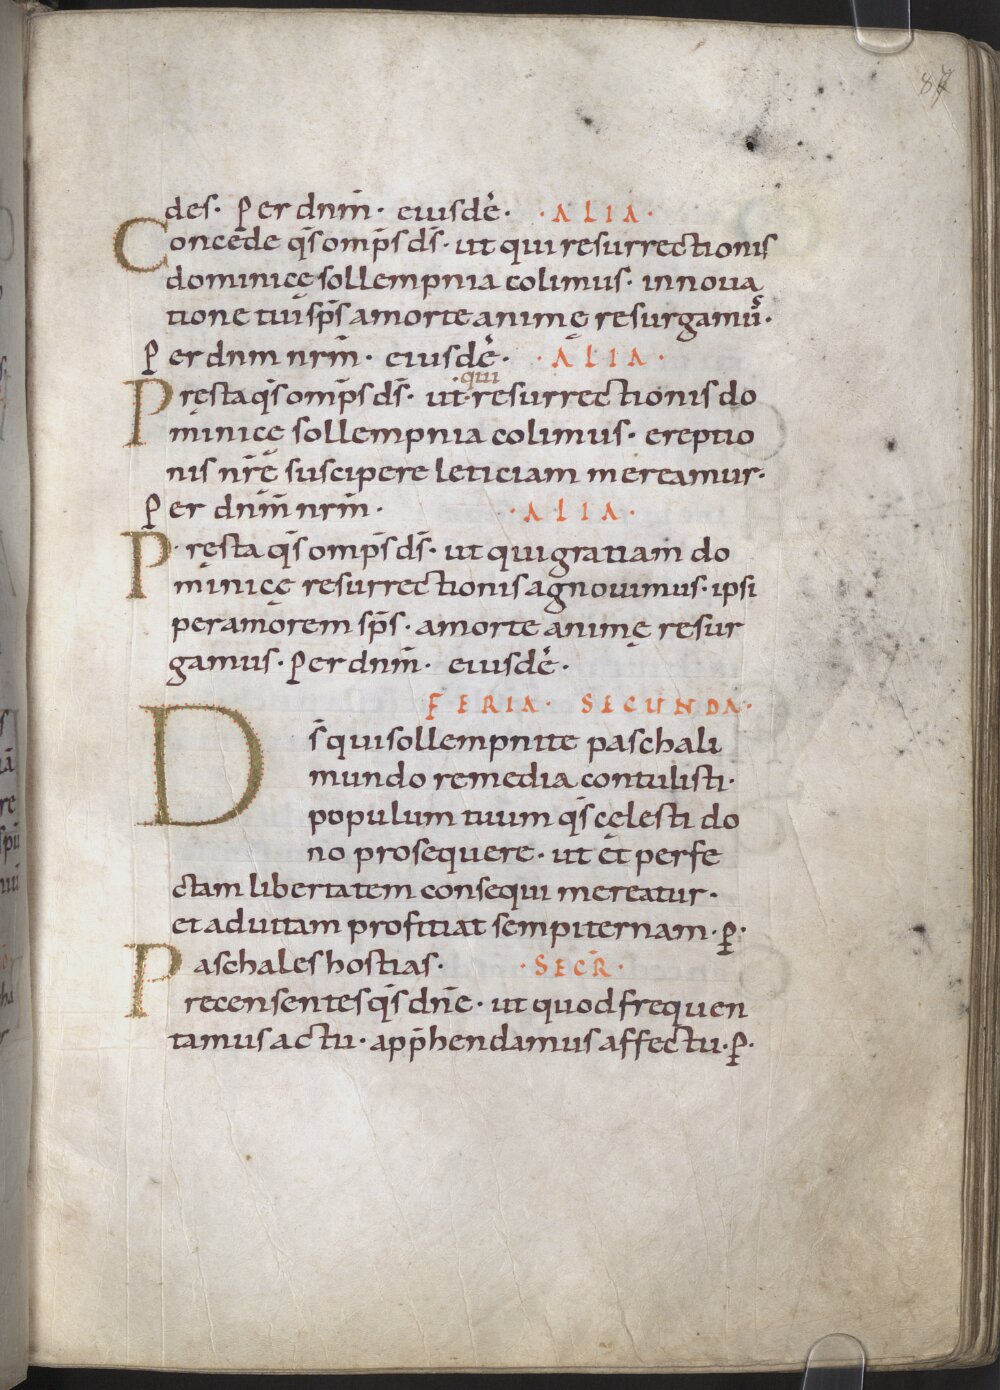 87
des· Per dnm̄· eiusdē· ·ALIA·
Concede qs̄ omp̄s ds̄· ut qui resurrectionis
dominicę sollempnia colimus· innoua
tione tui sp̄s a morte animę resurgamus·
Per dnm nrm̄· eiusdē· ·ALIA·
·qui
Pręsta qs̄ omp̄s ds̄· ut· resurrectionis do
minicę sollempnia colimus· ereptio
nis nr̄ę suscipere leticiam mereamur·
Per dnm̄ nrm̄· ·ALIA·
Pręsta qs̄ omp̄s ds̄· ut qui gratiam do
minicę resurrectionis agnouimus· ipsi
per amorem sp̄s· a morte animę resur
gamus· Per dnm̄· eiusdē·
FERIA· SECUNDA·
Ds̄ qui sollempnite paschali
mundo remedia contulisti·
populum tuum qs̄ cęlesti do
no prosequere· ut et perfe
ctam libertatem consequi mereatur·
et ad uitam profitiat sempiternam· p̱·
Paschales hostias· ·SECR̄·
recensentes qs̄ dn̄e· ut quod frequen
tamus actu· app̄hendamus affectu· p̱·